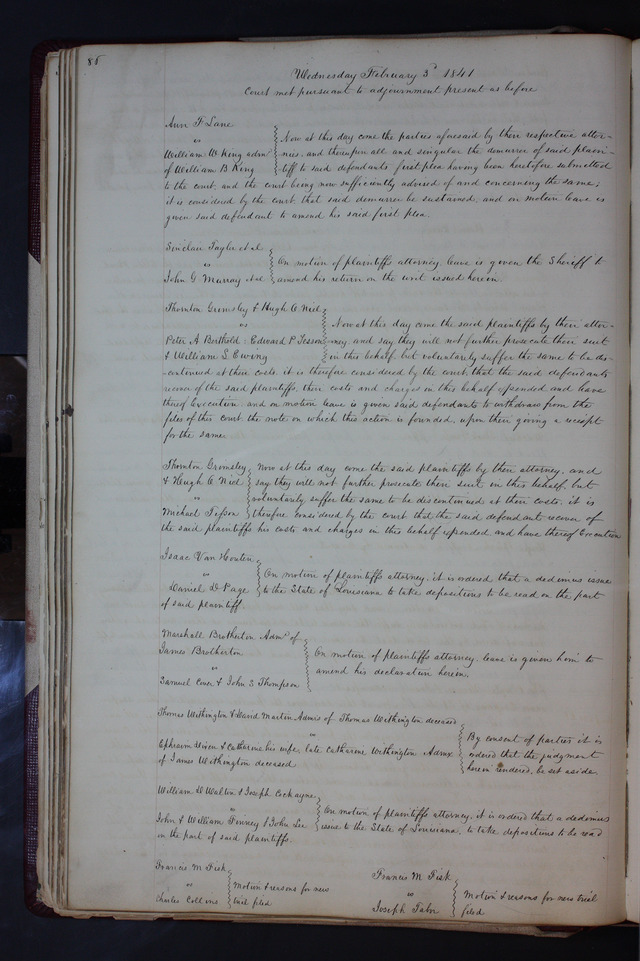 85
Wednesday February 3d 1841
Court met pursuant to adjournment present as before
Ann F Lane
vs
William W King admr
of William B King
Now at this day come the parties aforesaid by their respective attor-
nies, and thereupon all and singular the demurrer of said plain-
tiff to said defendants first plea having been heretofore submitted
to the court, and the court being now sufficiently advised of and concerning the same;
it is considered by the court that said demurrer be sustained, and on motion leave is
given said defendant to amend his said first plea.
Sinclair Taylor et al
vs
John G Murray et al
On motion of plaintiffs attorney, leave is given the Sheriff to
amend his return on the writ issued herein
Thornton Grimsley & Hugh O Niel
vs
Peter A Berthold, Edward P Tesson
& William L Ewing
Now at this day come the said plaintiffs by their attor-
ney and say they will not further prosecute their suit
in this behalf, but voluntarily suffer the same to be dis-
continued at their costs. it is therefore considered by the court, that the said defendants
recover of the said plaintiffs, their costs and charges in this behalf expended and have
thereof Execution. and on motion leave is given said defendants to withdraw from the
files of this court the note on which this action is founded, upon their giving a receipt
for the same.
Thornton Grimsley
& Hugh O Niel
vs
Michael
Now at this day come the said plaintiffs by their attorney, and
say they will not further prosecute their suit in this behalf, but
voluntarily suffer the same to be discontinued at their costs. it is
therefore considered by the court that the said defendant recover of
the said plaintiffs his costs and charges in this behalf expended, and have thereof Execution
Isaac Van Houten
vs
Daniel D Page
On motion of plaintiffs attorney, it is ordered that a dedimus issue
to the State of Louisiana to take depositions to be read on the part
of said plaintiff
Marshall Brotherton Admr of
James Brotherton
vs
Samuel & John S Thompson
On motion of plaintiffs attorney, leave is given him to
amend his declaration herein.
Thomas Withington & David Martin Admrs of Thomas Withington deceased
vs
Ephraim & Catharine his wife, late Catharine Withington Admx
of James Withington deceased
By consent of parties it is
ordered that the judgment
herein rendered, be set aside.
William D Walton & Joseph Cockayne
vs
John & William Finney & John Lee
On motion of plaintiffs attorney, it is ordered that a dedimus
issue to the State of Louisiana, to take depositions to be read
on the part of said plaintiffs.
Francis M Fisk
vs
Charles Collins
Motion & reasons for new
trial filed
Francis M. Fisk
vs
Joseph Tabor
Motion & reasons for new trial
filed